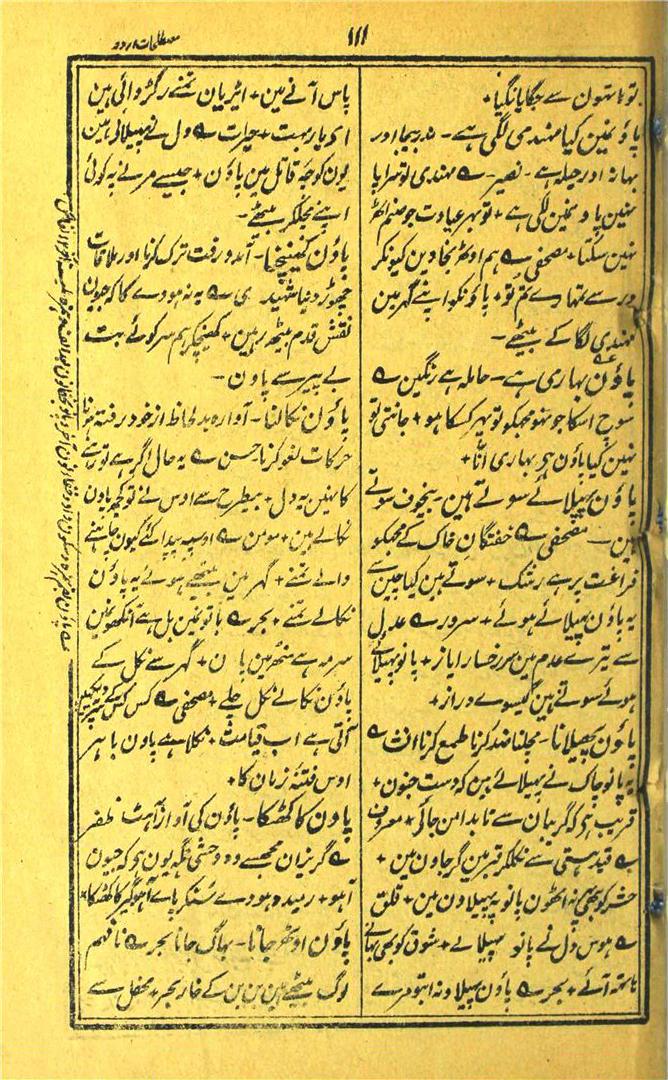 ۱۱۱
مصطلحات اردو
تو ہاتھون سے جگایا نگیا+
پاؤنمین کیا مہندی لگی ہے۔ ندیجا اور
بہانہ اور حیلہ ہے۔ نصیر۔ ے مہندی تو سراپا
نہین پاؤنمین لگی ہے+ تو بہر عیادت جو صنم اٹھ
نہین سکتا+ مصحفی ے ہم اوٹھ بجا دین کیونکر
در سے تمہارے تم تو+ پاؤنکو اپنے گہر مین
مہندی لگا کے بیٹھے۔
پاؤن بہاری ہے۔ حاملہ ہے رنگین ے
سوچ اسکا جو ہو مجھکو تو پہر کسکا ہو+ جانتی تو
نہین کیا پاؤن ہی بہاری انّا+
پاؤن پہیلائے سوتے ہین۔ بیخوف سوتے
ہین۔ مصحفی ے خفتگانِ خاک کے مجھکو
فراغت پر ہے رشک+ سوتے ہین کیا چین سے
یہ پاؤن پہیلائے ہوئے+ سرور ے عدل
سے تیرے عدم مین سر رخسار ایاز+ پانو پہیلائے
ہوئے سوتے ہین گیسوے دراز+
پاؤن پھیلانا۔ مچلنا ضد کرنا طمع کرنا انشا ے
یہ پانو چاک نے پہیلائے ہین کہ دست جنون+
قریب ہی کہ گریبان سے تابدامن جائی+ معروف
ے قید ہستی سے نکلکر قبر مین گر جاون مین+
حشر کو بھی نہ اٹھون پانو یہ پہیلاون مین+ قلق
ے ہوس دل نے پانو پہیلائے+ شوق کو بھی بہانے
ہاتھ آئے+ بحر ے پاؤن پہیلاو نہ ابتو مرے
پاس آنے مین+ ایڑیان تمنے رگڑوائی ہین
ای یار بہت+ حیرت ے دل نے پہیلائے ہین
یون کوچۂ قاتل مین پاؤن+ جیسے مرنے پہ کوئی
اپنے مچلکر بیٹھے۔
پاؤن کھینچنا۔ آمد و رفت ترک کرنا اور ملاقات
چھوڑ دینا شہیدی ے یہ نہ ہووے گا کہ جون
نقش قدم بیٹھ رہین+ کھینچکر ہم سر کوئے بت
بے پیر سے پاون۔
پاؤن نکالنا۔ آوارہ بد لحاظ از خود رفتہ ہونا
حرکات لغو کرنا۔ حسن ے یہ حال اگر ہے تو رہے
کا نہین یہ دل+ بیطرح سے اوس نے تو کچھ پاون
نکالے ہین+ مومن ے اوسپہ پیدا کئے کیون چاہنے
والے تمنے+ گہر مین بیٹھے ہوئے یہ پاؤن
نکالے تمنے+ بحر ے باتونمین بل ہے آنکھونمین
سرمہ ہے منھ مین پان+ گہر سے نکل کے
پاؤن نکالے نکل چلے+ مصحفی ے کس کس کے سر پہ دیکھین
آتی ہے اب قیامت+ نکلا ہے پاون باہر
اوس فتنۂ زمان کا+
پاون کا کھٹکا۔ پاؤن کی آواز آہٹ ظفر
ے گریزان مجھسے وہ وحشی نگہ یون ہی کہ جیون
آہو+ رمیدہ ہووے سنکر پاے آہوگیر کا کھٹکا+
پاؤن اوٹھ جانا۔ بھاگ جانا بحر ے نافہم
لوگ بیٹھے ہین بن بن کے خار بحر+ محفل سے